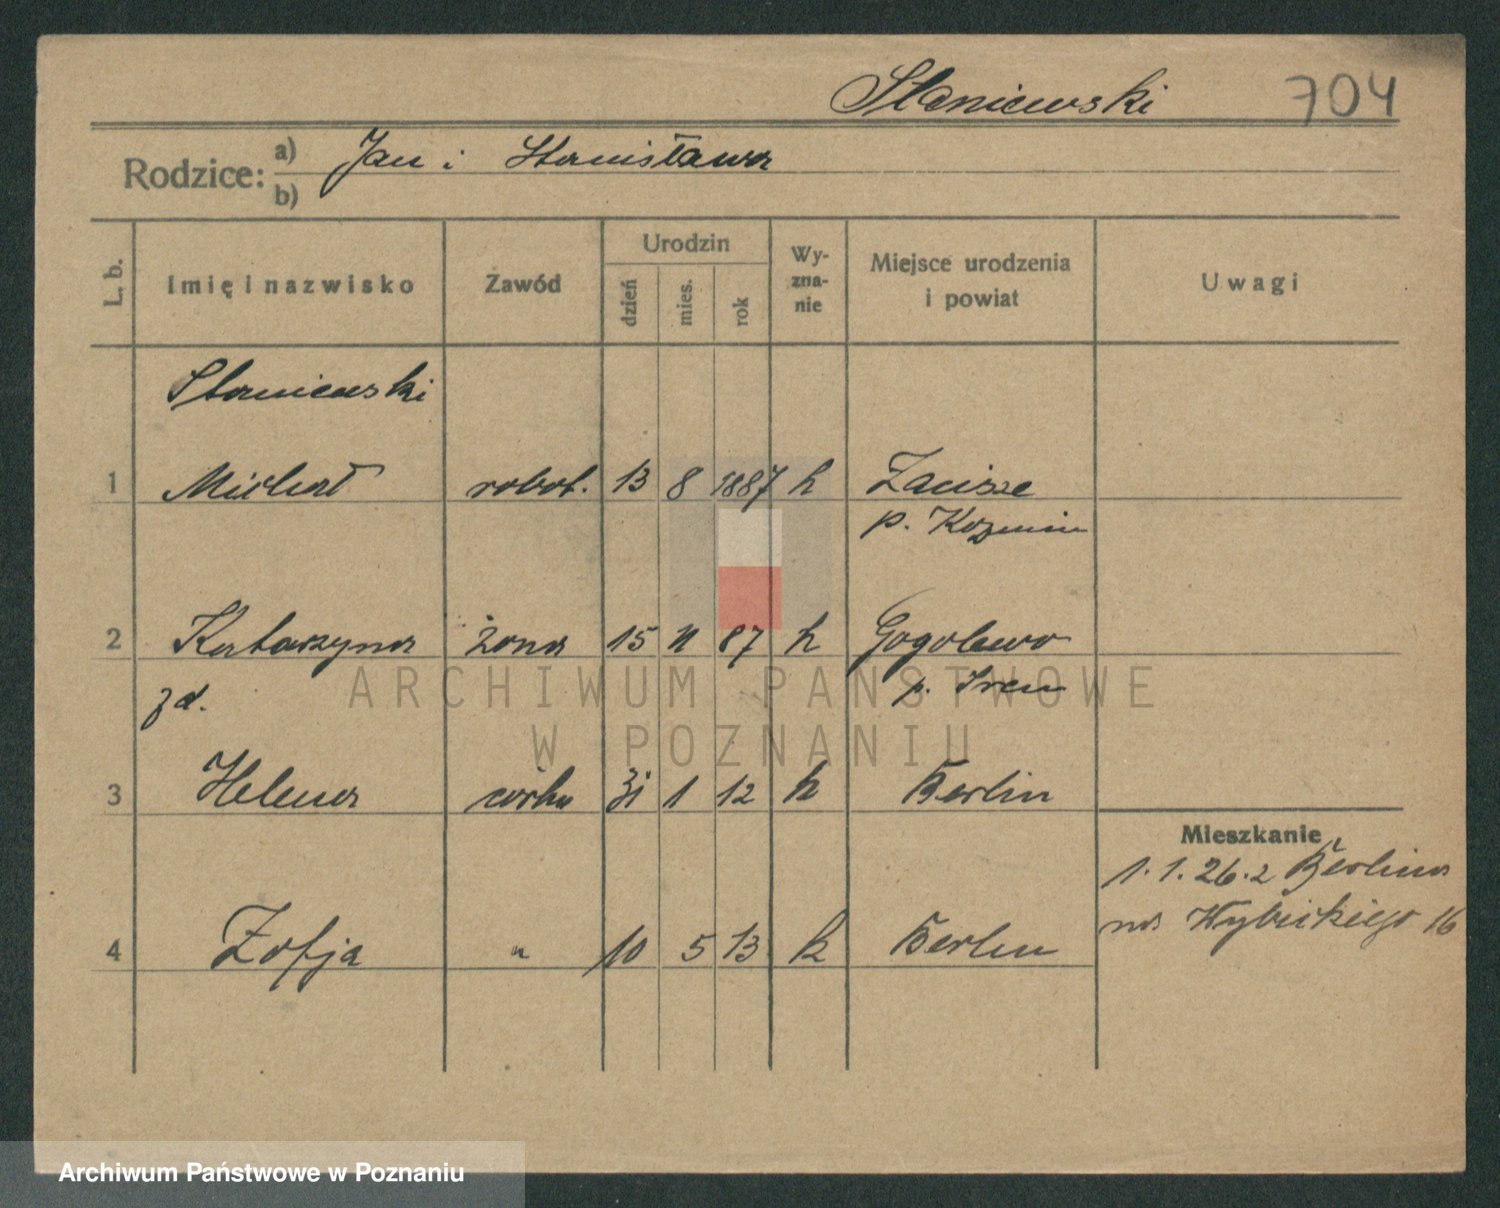 Staniewski 704
Rodzice: a) Jan i Stanisława
b)
L. b. Imię i nazwisko Zawód Urodzin dzień mies. rok Wy-zna-nie Miejsce urodzenia i powiat Uwagi
Staniewski
1 Michał robot. 13 8 1887 k Zacisze
p. Koźmin
2 Katarzyna żona 15 11 87 k Gogolewo
zd. p. Śrem
3 Helena córka 31 1 12 k Berlin
Mieszkanie
1.1.26. z Berlina
na Wybickiego 16
4 Zofja " 10 5 13 k Berlin
ARCHIWUM PAŃSTWOWE
W POZNANIU
Archiwum Państwowe w Poznaniu